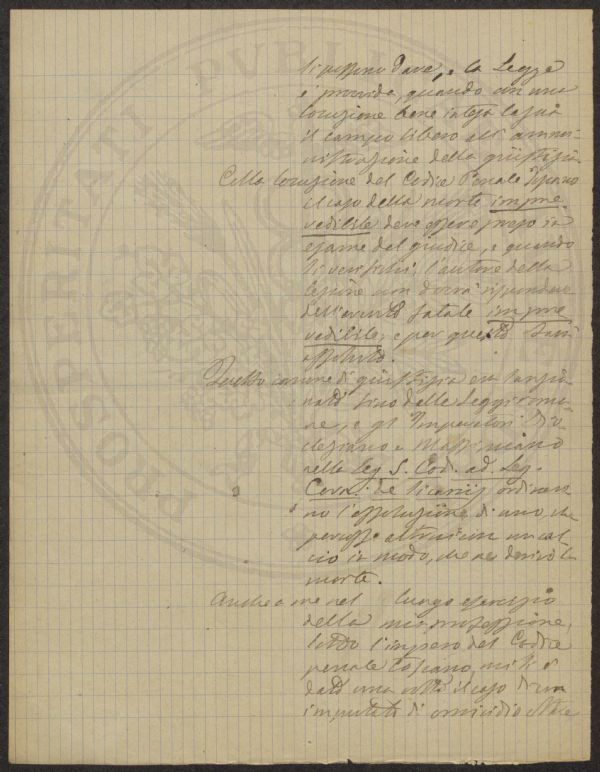 si possono dare, e la Legge
è provvida, quando con una
locuzione bene intesa lascia
il campo libero all'ammi-
nistrazione della giustizia.
Colla locuzione del Codice Penale Toscano
il caso della morte impre
vedibile deve essere preso in
esame dal giudice, e quando
si verifichi, l'autore della
lesione non dovrà rispondere
dell'evento fatale impre
vedibile, e per questo sarà
assoluto.
Questo canone di giustizia era sanzio
nato sino dalle Leggi roma
ne, e gl'Imperatori Dio
cleziano e Massimiano
nella Leg. 5. Cod. ad. Leg.
Corn. de Sicariis ordinaro
no l'assoluzione di uno, che
percosse altrui con un cal
cio in modo, che ne derivò la
morte.
Anche a me nel lungo esercizio
della mia professione,
sotto l'impero del Codice
penale Toscano, mi si è
dato una volta il caso di un
imputato di omicidio oltre